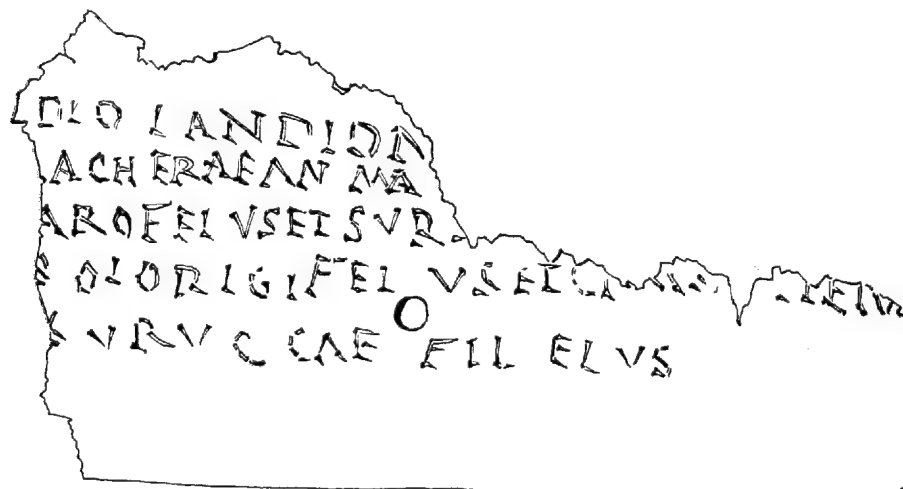 DLOLANDION
ACHERAEANMA
AROFELVSETSVR
OLORIGIFEL VSETC
SVRVCCAE FILELVS